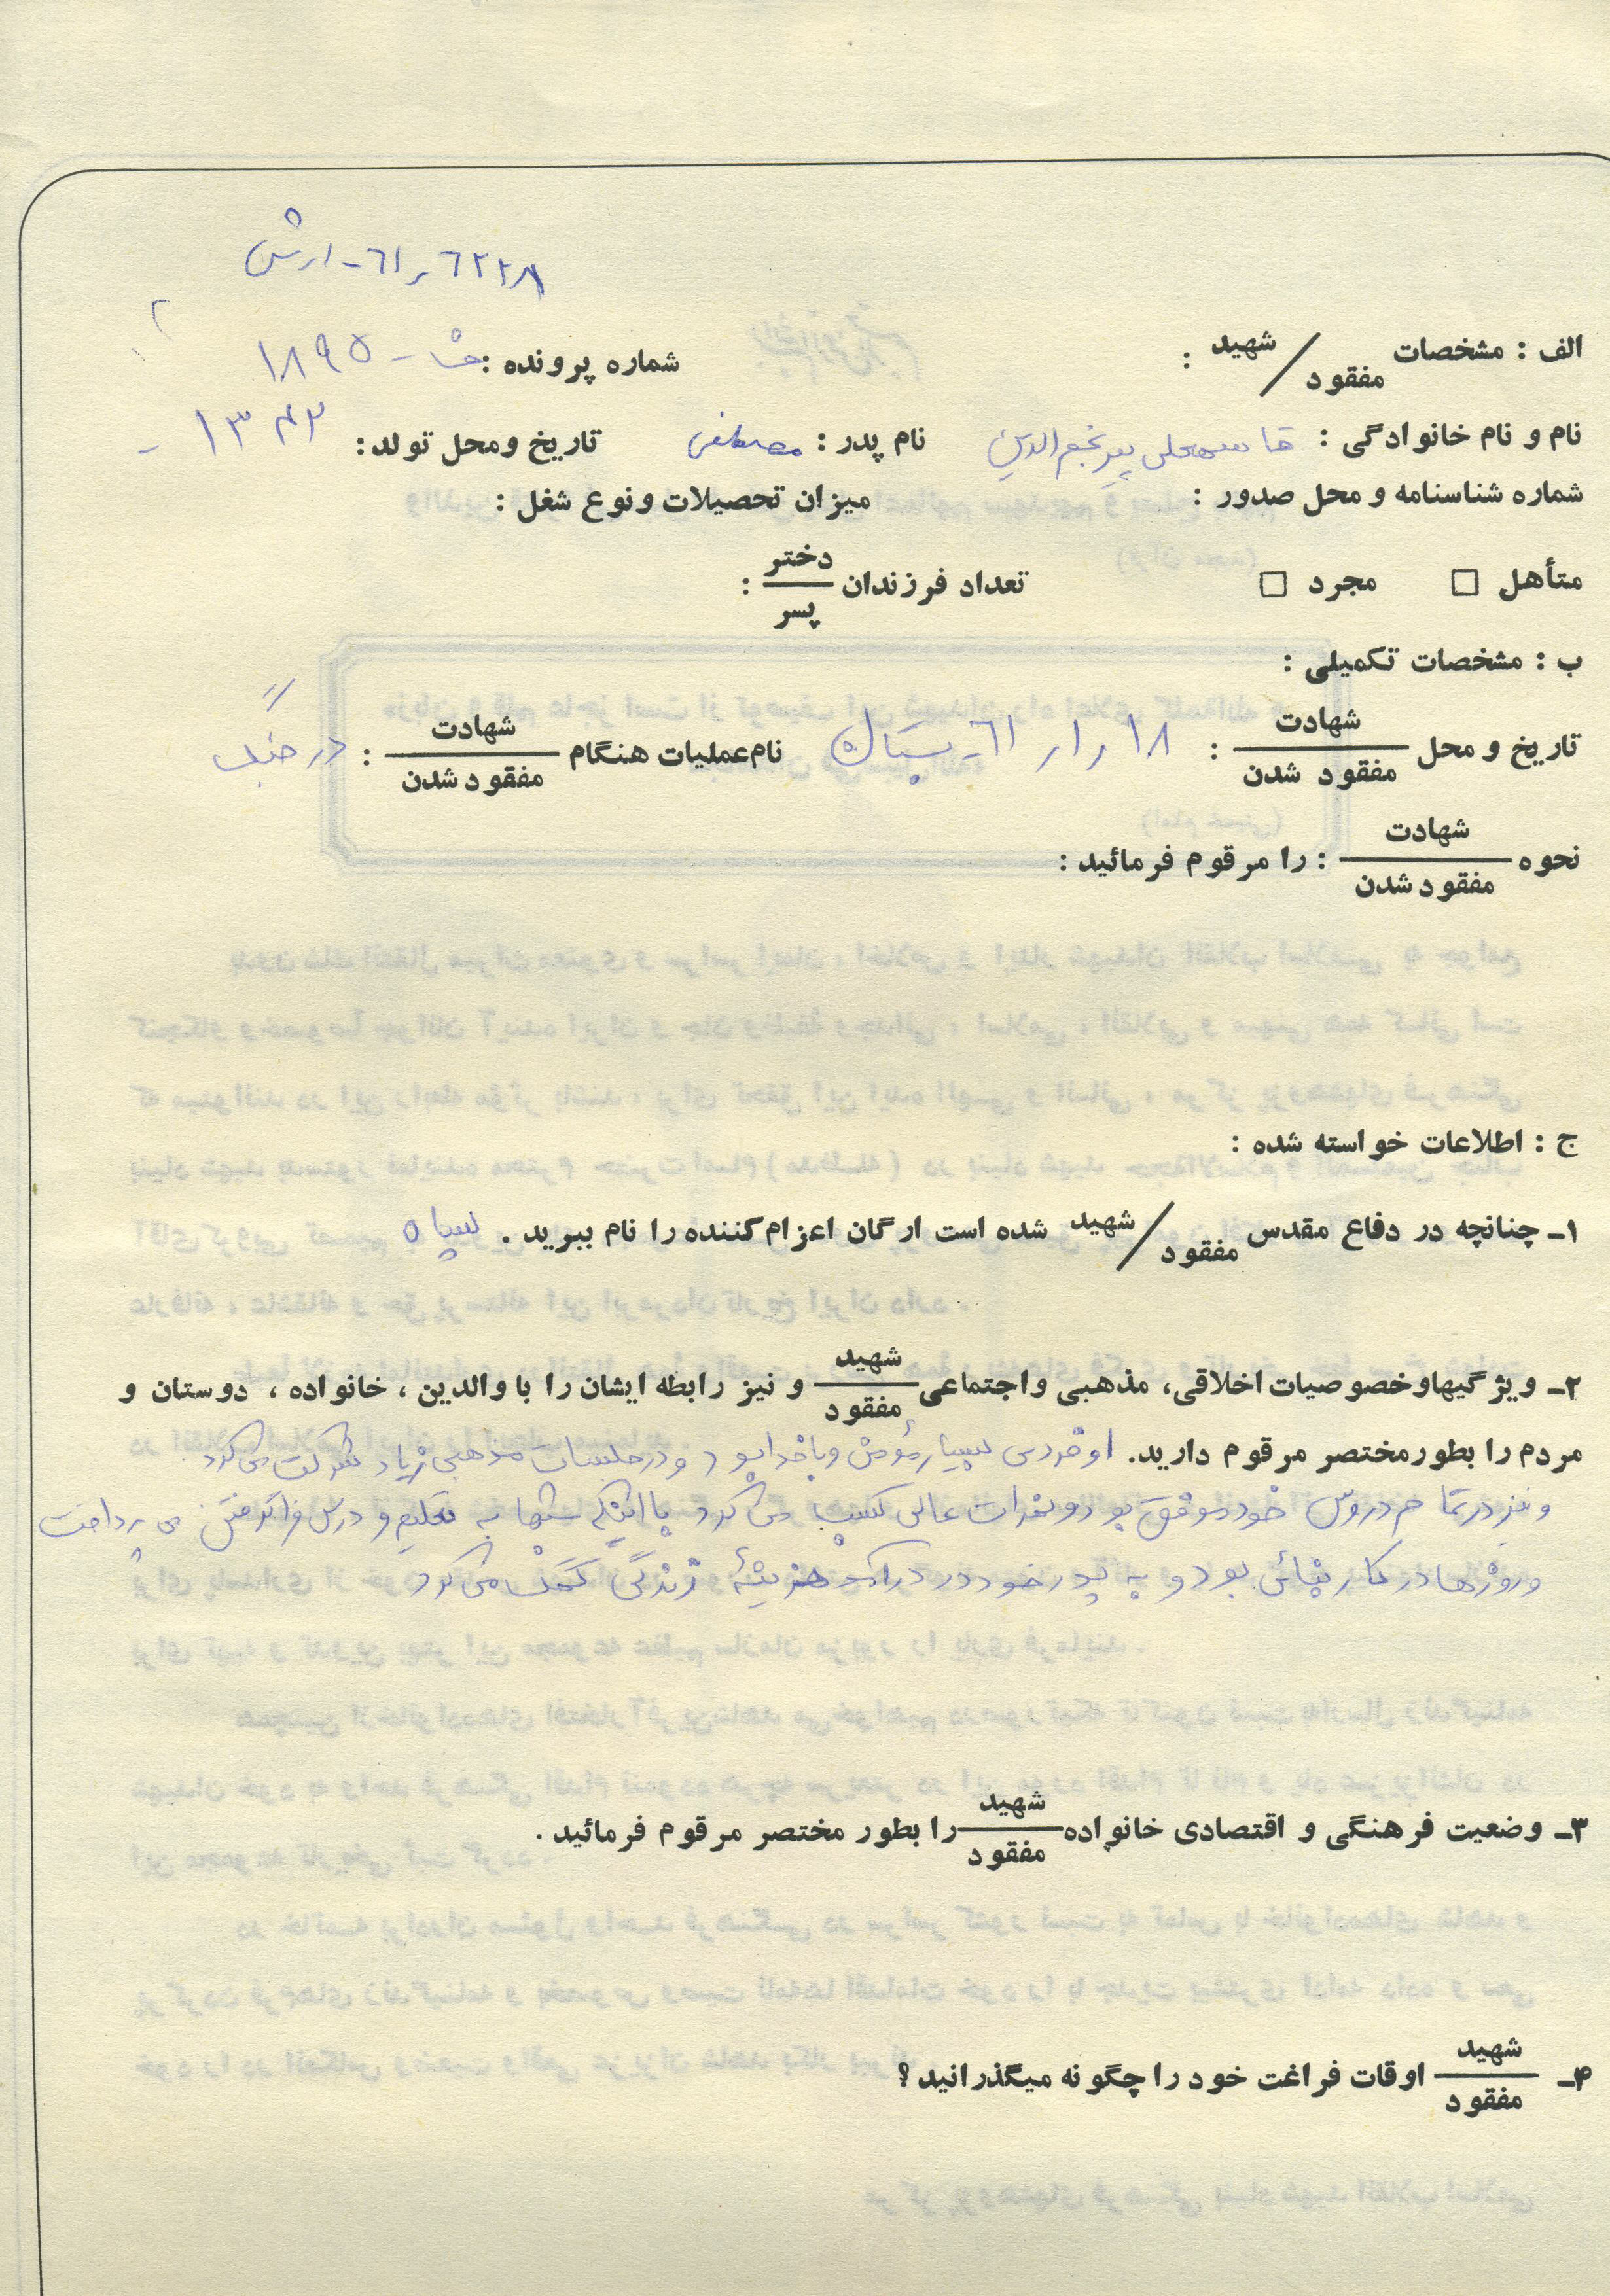 ٦٢٢٨ر٦١-ارتش
الف : مشخصات شهید / مفقود :
شماره پرونده : خا - ١٨٩٥
نام و نام خانوادگی : قاسمعلی پیرنجم‌الدین نام پدر : مصطفی تاریخ ومحل تولد : ١٣٤٢ -
شماره شناسنامه و محل صدور : میزان تحصیلات ونوع شغل :
متأهل □ مجرد □ تعداد فرزندان دختر / پسر :
ب : مشخصات تکمیلی :
تاریخ و محل شهادت / مفقود شدن : ١٨ ر ١ر ٦١- بستان نام عملیات هنگام شهادت / مفقود شدن : در جنگ
نحوه شهادت / مفقود شدن : را مرقوم فرمائید :
ج : اطلاعات خواسته شده :
۱ـ چنانچه در دفاع مقدس شهید / مفقود شده است ارگان اعزام کننده را نام ببرید . سپاه
۲ـ ویژگیهاوخصوصیات اخلاقی، مذهبی واجتماعی شهید / مفقود و نیز رابطه ایشان را با والدین ، خانواده ، دوستان و
مردم را بطور مختصر مرقوم دارید. او فردی بسیار مؤمن و با خدا بود و در جلسات مذهبی زیاد شرکت می کرد
و نیز در تمام دروس خود موفق بود و نمرات عالی کسب می کرد با اینکه شبها به تعلیم و درس فراگرفتن می پرداخت
و روزها در کار بنائی بود و به پدر خود در درآمد هزینهٔ زندگی کمک می کرد
۳ـ وضعیت فرهنگی و اقتصادی خانواده شهید / مفقود را بطور مختصر مرقوم فرمائید .
۴ـ شهید / مفقود اوقات فراغت خود را چگونه میگذرانید ؟